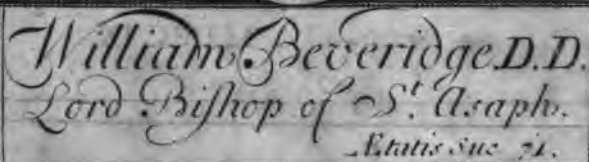 William Beveridge D.D.
Lord Biſhop of S.t Asaph.
Ætatis Suæ 71.